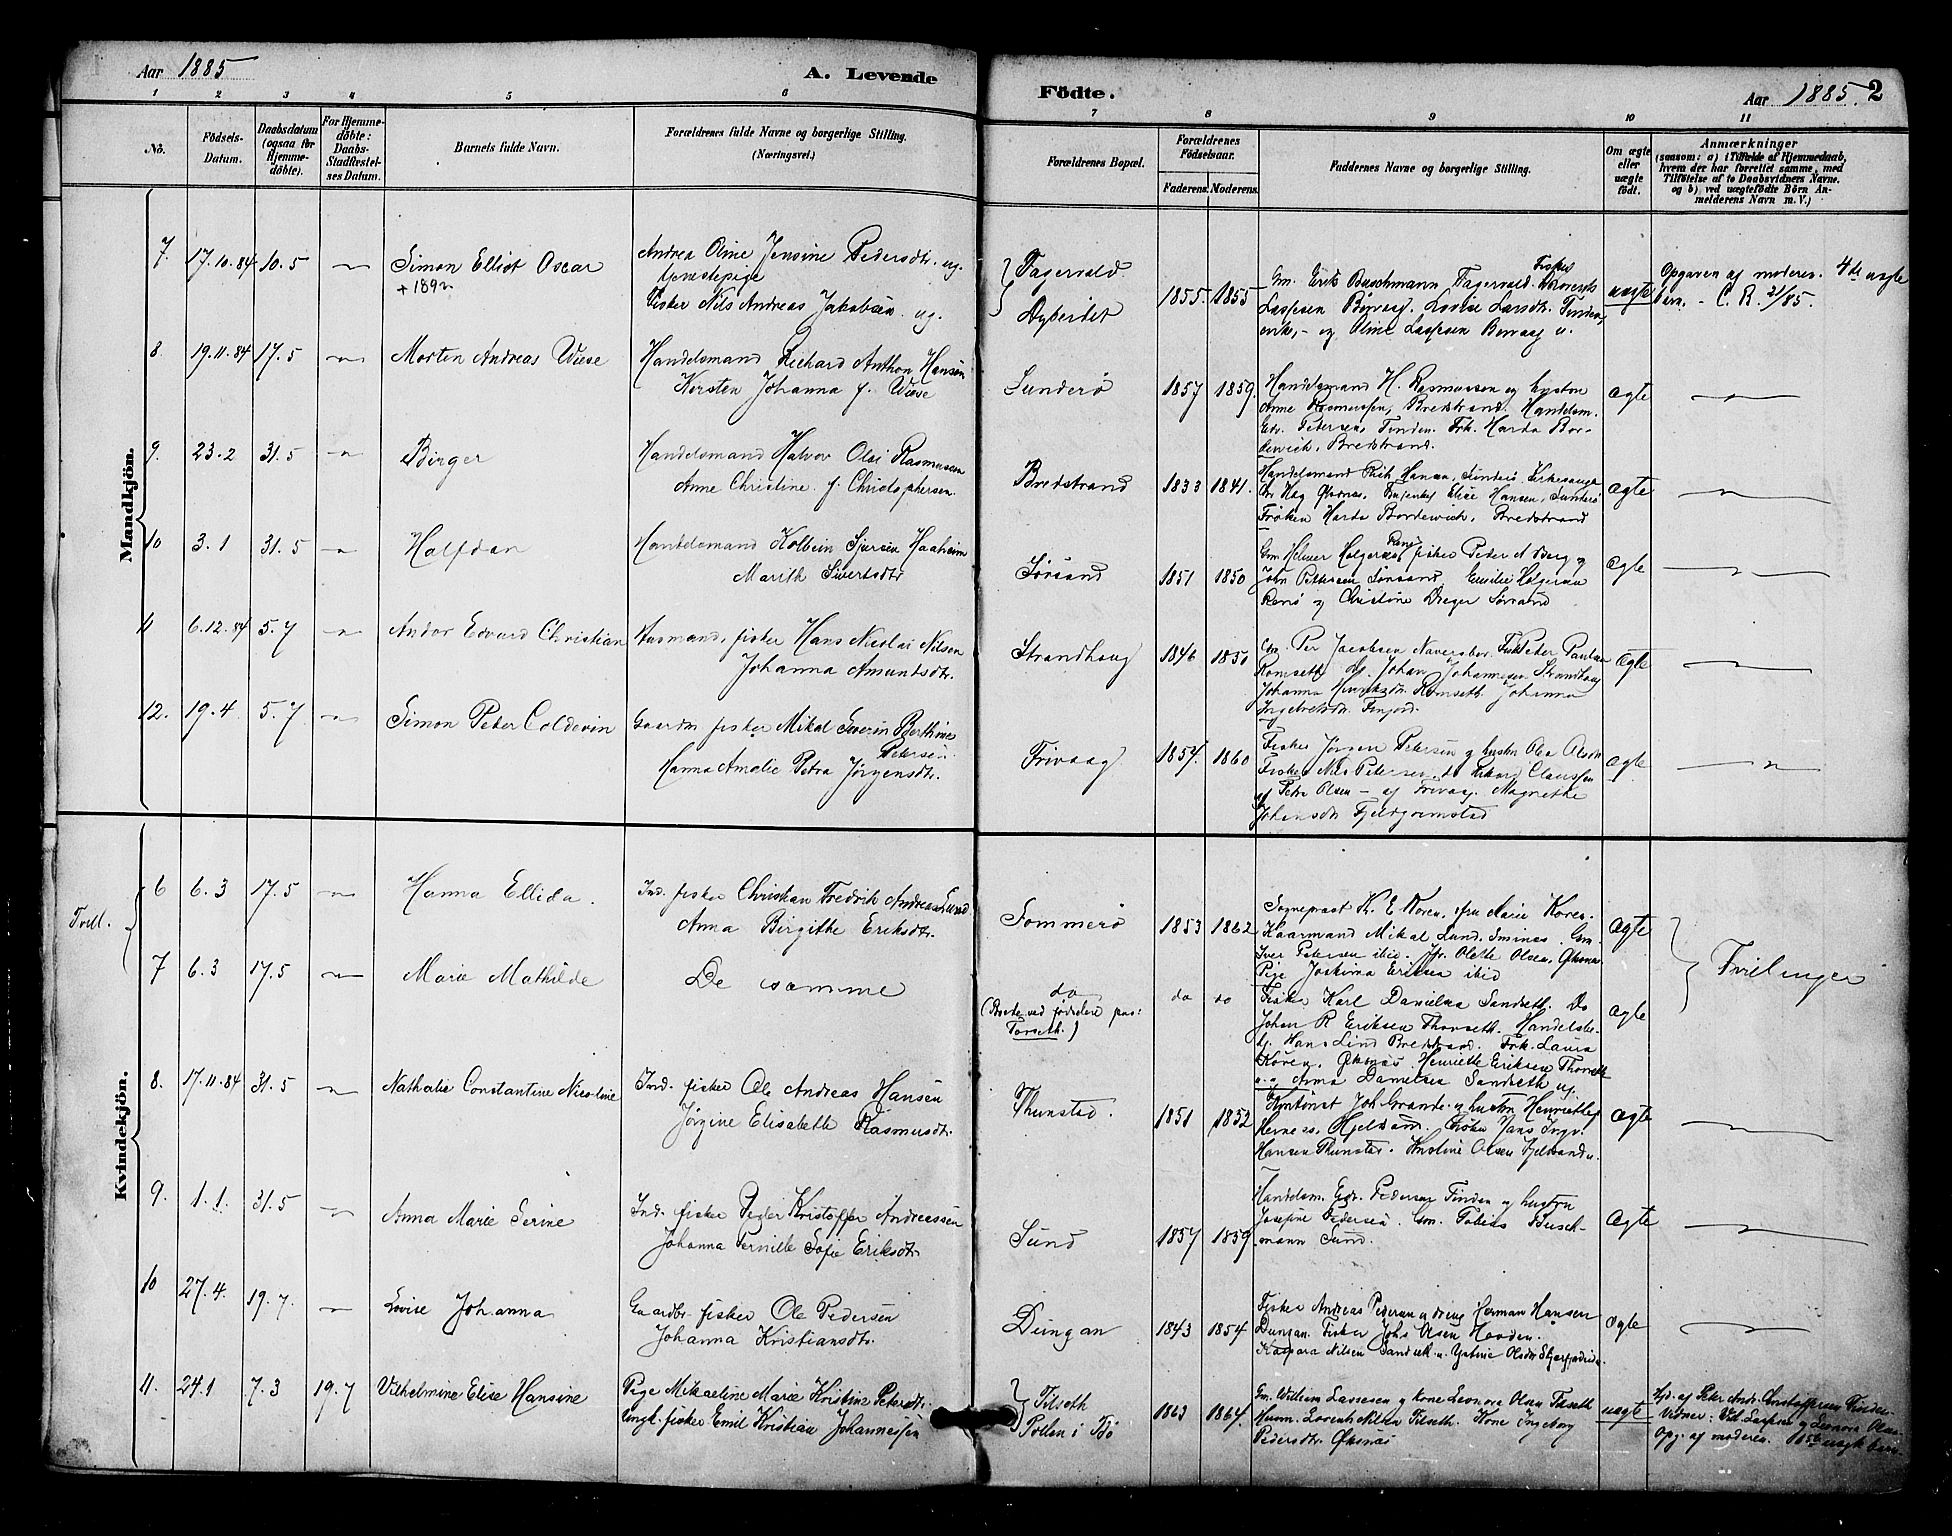 Aar 1885
A. Levende
Fødte.
Aar 1885. 2
1 2 3 4 5 6 7 8 9 10 11
No.
Fødsels-
Datum.
Daabsdatum
(ogsaa for
Hjemme-
døbte).
For Hjemme-
døbte:
Daabs-
Stadfæstel-
ses Datum.
Barnets fulde Navn.
Forældrenes fulde Navne og borgerlige Stilling.
(Næringsvei.)
Forældrenes Bopæl.
Forældrenes
Fødselsaar.
Faderens. Moderens.
Faddernes Navne og borgerlige Stilling.
Om ægte
eller
uægte
født.
Anmærkninger
(saasom: a) i Tilfælde af Hjemmedaab,
hvem der har forrettet samme, med
Tilføielse af to Daabsvidners Navne.
og b) ved uægtefødte Børn An-
melderens Navn m. V.)
Mandkjön.
7. 17.10.84 10.5 Simon Elliot Oscar
+ 1892
Andrea Oline Jensine Pedersdtr. ug.
tjenestepige
Fisker Nils Andreas Jakobsen. ug.
Fagervold
Dybeidet
1855. 1855
Gm. Erik Buschmann Fagervold. Fisker
Laspesen Børvaag. Lovise Larsdtr. Finden,
og Oline Laspesen Børvaag u.
uægte
Opgaven af moderen. 4de uægte
barn. - C. R. 2/85.
8. 19.11.84 17.5 Morten Andreas Wiese
Handelsmand Richard Anthon Hansen
Kersten Johanna f. Wiese
Sunderø
1857 1859.
Handelsmand H. Rasmussen og hustru
Anne Rasmussen, Bredstrand. Handelsm.
Edv. Petersen Finden. Frk. Harda Bor-
dewich, Bredstrand.
Ægte
9. 23.2 31.5 Birger
Handelsmand Halvor Olai Rasmusen
Anne Christine f. Christophersen.
Bredstrand
1833 1841.
Handelsmand Rich. Hansen, Sunderø Kirkesanger
Hag Øksnes, Elise Hansen, Sunderø
Frøken Harda Bordewich, Bredstrand
Ægte
10 3.1 31.5 Halfdan
Handelsmand Kolbein Sjursen Haaheim
Marith Sivertsdtr
Sørsand
1851 1850
Gm Helmer Holgersen fisker Peder A Berg og
John Pettersen Sørsand, Emilie Holgersen
Renø og Christine Dreyer Sørsand
Ægte
11 6.12.84 5.7 Andor Edvard Christian
Husmand, fisker Hans Nicolai Nilsen
Johanna Amundsdtr.
Strandhaug
1846 1850
Gm. Per Jacobsen Naversbor. Fisk Peder Paulsen
Romseth do. Johan Johannesen Strandhaug
Johanna Henriksdtr. Romseth. Johanna
Ingebretsdtr. Finfjord.
Ægte
12. 19.4. 5.7 Simon Peter Coldevin
Gaardm. fisker Mikal Severin Berthines
Petersen.
Hanna Amalie Petra Jørgensdtr.
Frivaag
1857. 1860
Fisker Jørgen Petersen og hustru Ole Olsen
Fisker Nils Petersen, do Rikard Claussen
af Petra Olsen - af Frivaag. Magrethe
Johansdtr. Fjeldgrimstad
Ægte
Kvindekjön.
Tvill.
6 6.3 17.5 Hanna Ellida.
Ind. fisker Christian Fredrik Andreas Lund
Anna Birgithe Eriksdtr.
Sommerø
1853 1862
Sogneprest Kr. E Koren, fru Marie Koren.
Kaarmand Mikal Lund, Smines. Gm.
Iver Petersen ibid. Jfr. Olette Olsen, Øksnes
Pige Joakima Eriksen ibid
Ægte
Tvillinger
7 6.3 17.5 Marie Mathilde
De samme
do
(Boede ved fødselen paa:
Torseth.)
do do
Fisker Karl Danielsen Sandseth. Do
Johan R Eriksen Thorseth. Handelsbe-
tj. Hans Lind Bredstrand. Frk. Laura
Koren. Øksnæs. Henriette Eriksen Thorseth
u. og Anna Danielsen Sandseth ug.
Ægte
8. 17.11.84 31.5 Nathalie Constantine Nicoline
Ind. fisker Ole Andreas Hansen
Jørgine Elisabeth Rasmusdtr.
Thunstad.
1851 1852
Kontorist Joh. Grande og hustru Henriette
Hernes, Hjeldsand. Fisker Hans Ingv.
Hansen Thunstad. Kristine Olsen Fjeldsand u.
Ægte
9. 1.1. 31.5 Anna Marie Serine
Ind. fisker Peder Kristoffer Andreassen
Johanna Pernille Sofie Eriksdtr.
Sund
1857 1859.
Handelsm. Edv. Pedersen Finden og hustru
Josefine Pedersen. Gm. Tobias Busch-
mann Sund.
Ægte
10 27.4. 19.7. Lovise Johanna
Gaardbr. fisker Ole Pedersen
Johanna Kristiansdtr.
Dungan
1843 1854
Fisker Andreas Pedersen og dreng Herman Hansen
Dungan. Fisker Johs Olsen Hovden.
Kaspara Nilsen Sandset. u.
Ægte
11. 24.1 7.3 19.7 Vilhelmine Elise Hansine
Pige Mikaeline Marie Kristine Petersdtr.
Ungk. fisker Emil Kristian Johannessen
Tilseth
Pollen i Bø
1863 1864.
Gm. William Lassesen og kone Leonora Olsen Tilseth
Husm. Lorents Nilsen Tilseth. Kone Ingeborg
Pedersdtr. Øksnæs
uægte
Hjd. af Peter Andr. Kristoffersen Finden.
Vidner: Vil. Laspesen og Leonora Olsen.
Opg. af moderen. 1ste uægte barn.